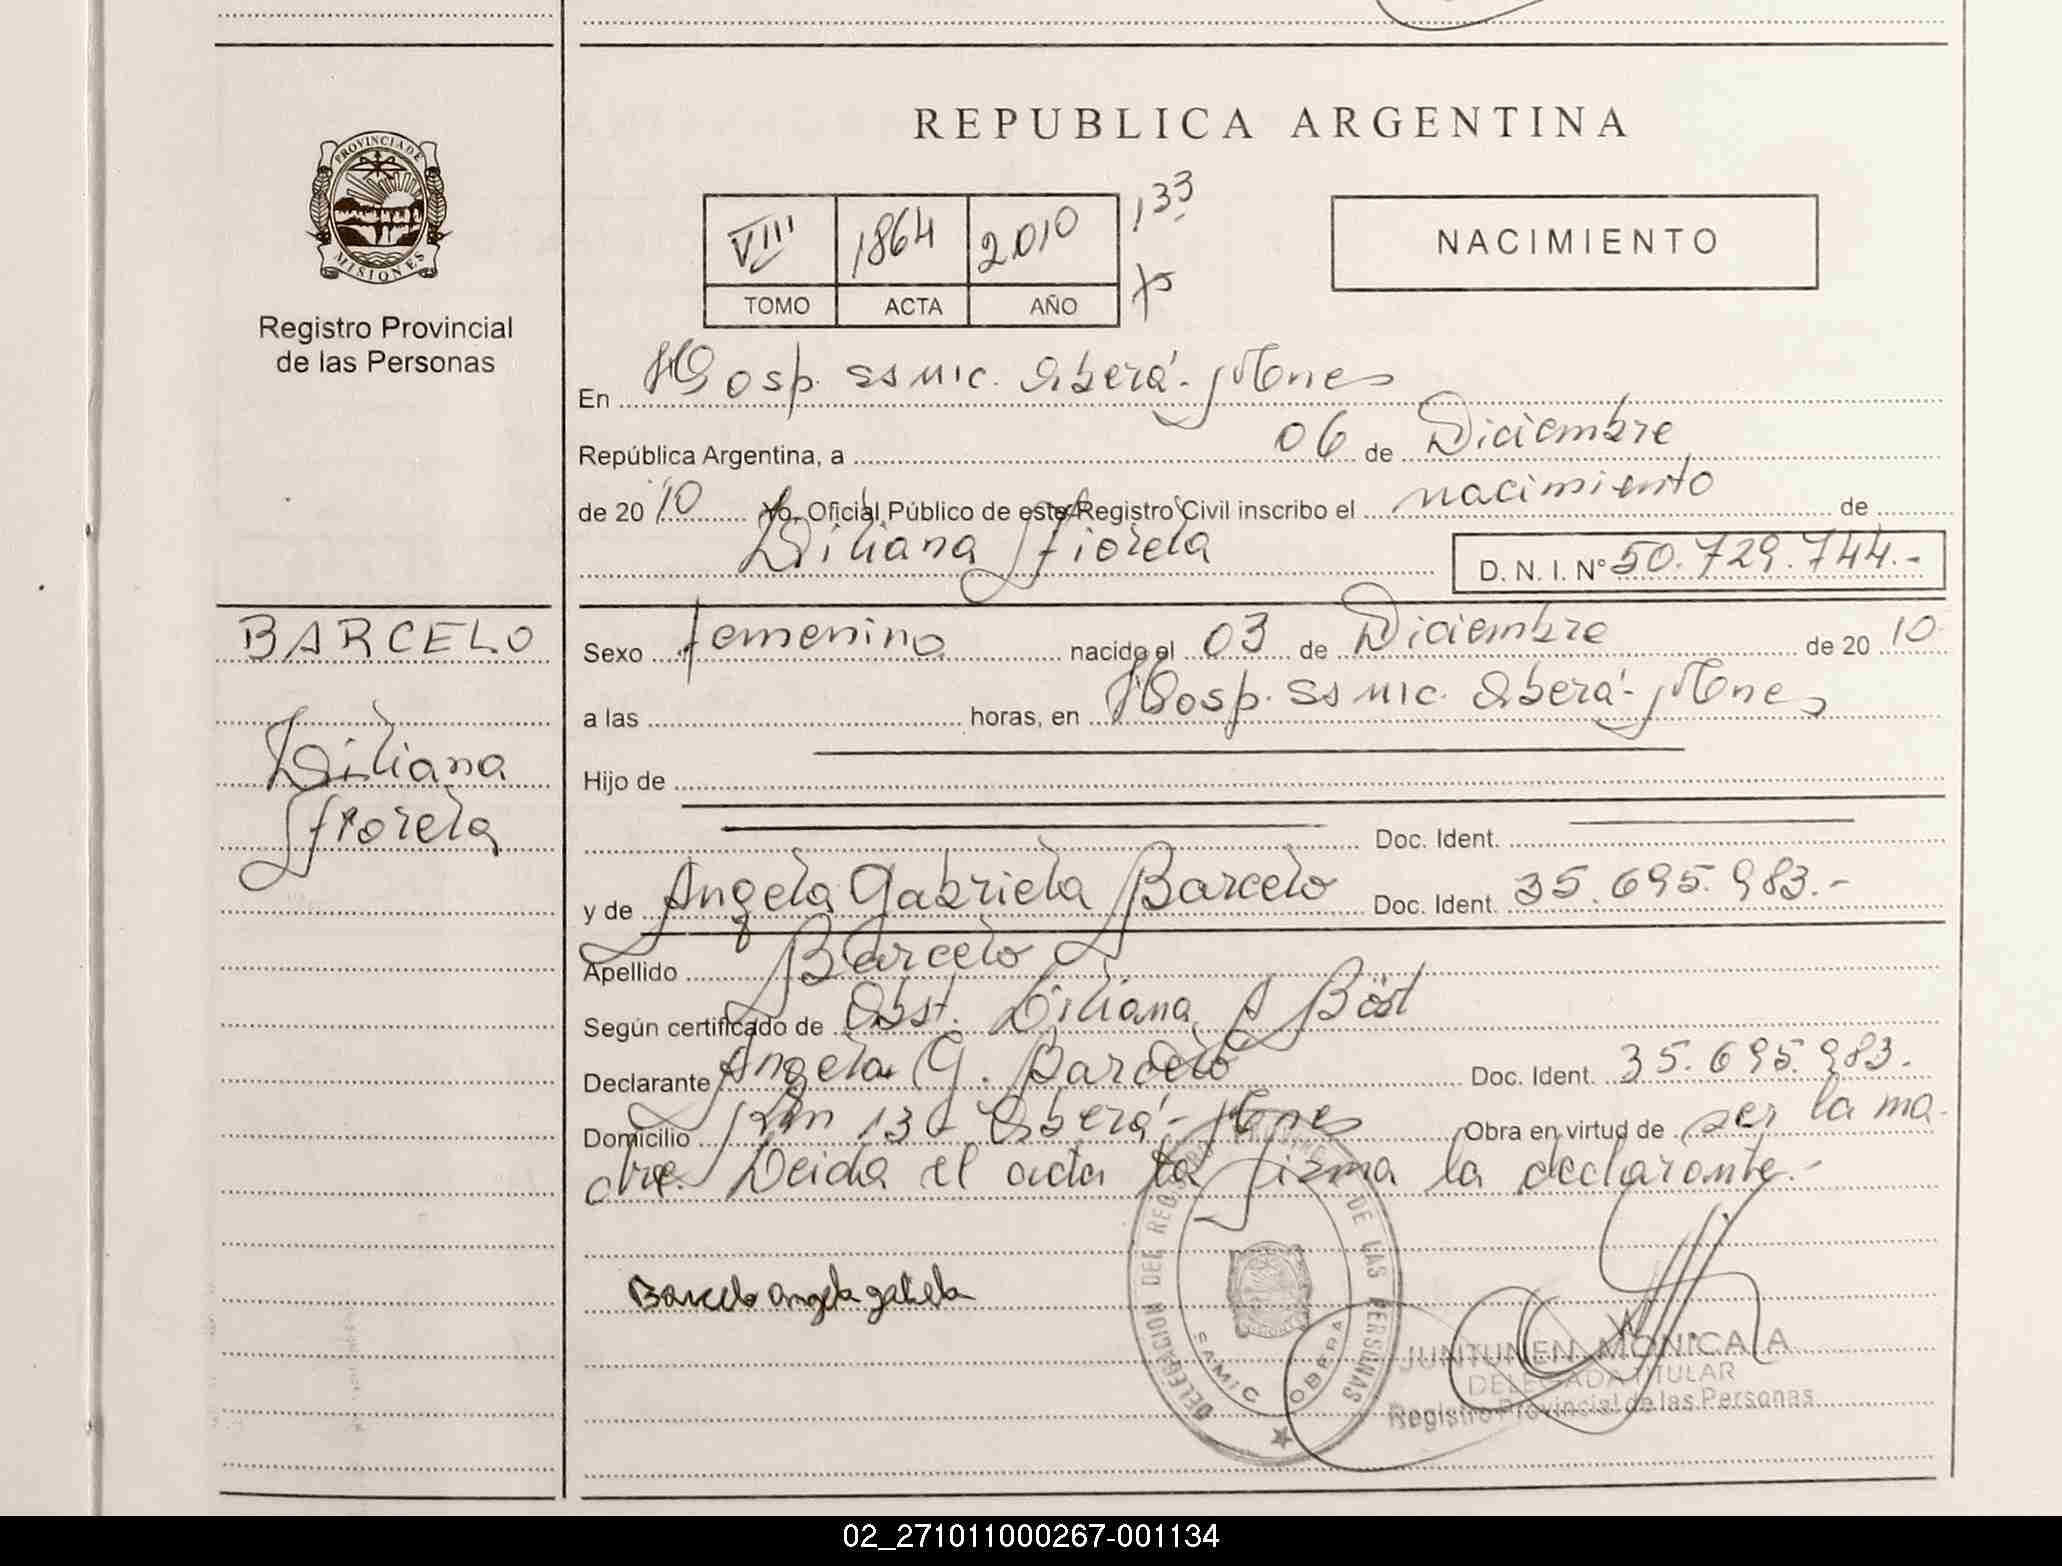 REPUBLICA ARGENTINA
PROVINCIA DE
MISIONES
Registro Provincial
de las Personas
VIII 1864 2010 133
TOMO ACTA AÑO
NACIMIENTO
En Hosp. SAMIC. Oberá - Mnes
República Argentina, a 06 de Diciembre
de 2010 Yo, Oficial Público de este Registro Civil inscribo el nacimiento de
Liliana Fiorela D. N. I. N° 50.729.744.-
BARCELO
Liliana
Fiorela
Sexo femenino nacido el 03 de Diciembre de 2010
a las horas, en Hosp. SAMIC. Oberá - Mnes
Hijo de
Doc. Ident.
y de Angela Gabriela Barcelo Doc. Ident. 35.695.983.-
Apellido Barcelo
Según certificado de Obst. Liliana A Böst
Declarante Angela G. Barcelo Doc. Ident. 35.695.983.
Domicilio Km 13 - Oberá - Mnes Obra en virtud de ser la ma-
dre. Leida el acta la firma la declarante.-
Barcelo angela gabriela
DELEGACION DEL REG DE LAS PERSONAS
SAMIC OBERA
JUNTUNEN MONICA A
DELEGADA TITULAR
Registro Provincial de las Personas
02_271011000267-001134